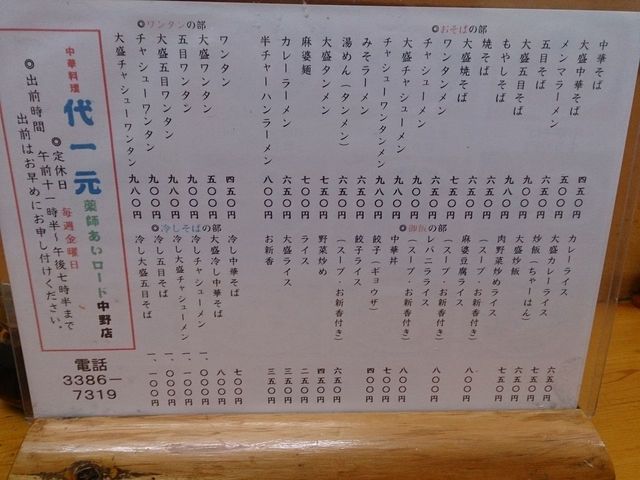 ◎おそばの部
中華そば 四五〇円
大盛中華そば 五〇〇円
メンマラーメン 六五〇円
五目そば
大盛五目そば
もやしそば
焼そば 六五〇円
大盛焼そば 七五〇円
ワンタンメン 六五〇円
チャシューメン 九〇〇円
大盛チャシューメン 九八〇円
チャシューワンタンメン 九八〇円
みそラーメン 六五〇円
湯めん(タンメン) 六五〇円
大盛タンメン 七五〇円
麻婆麺 七〇〇円
カレーラーメン 六五〇円
半チャーハンラーメン 八〇〇円
◎ワンタンの部
ワンタン 四五〇円
大盛ワンタン 五〇〇円
五目ワンタン 九〇〇円
大盛五目ワンタン 九八〇円
チャシューワンタン 九〇〇円
大盛チャシューワンタン 九八〇円
◎御飯の部
カレーライス 六五〇円
大盛カレーライス 七五〇円
炒飯(ちゃーはん) 六五〇円
大盛炒飯 七五〇円
肉野菜炒めライス
(スープ・お新香付き) 八〇〇円
麻婆豆腐ライス
(スープ・お新香付き) 八〇〇円
レバニラライス
(スープ・お新香付き) 八〇〇円
中華丼 七〇〇円
餃子(ギョウザ) 四〇〇円
餃子ライス
(スープ・お新香付き) 六五〇円
野菜炒め 四五〇円
ライス 二五〇円
大盛ライス 三五〇円
お新香 三五〇円
◎冷しそばの部
冷し中華そば 七〇〇円
大盛冷し中華そば 八〇〇円
冷しチャシューメン 一、〇〇〇円
冷し大盛チャシューメン 一、一〇〇円
冷し五目そば 一、〇〇〇円
冷し大盛五目そば 一、一〇〇円
中華料理
代一元
薬師あいロード中野店
◎定休日 毎週金曜日
◎出前時間 午前十一時半〜午後七時半まで
出前はお早めにお申し付けください。
電話
3386−
7319